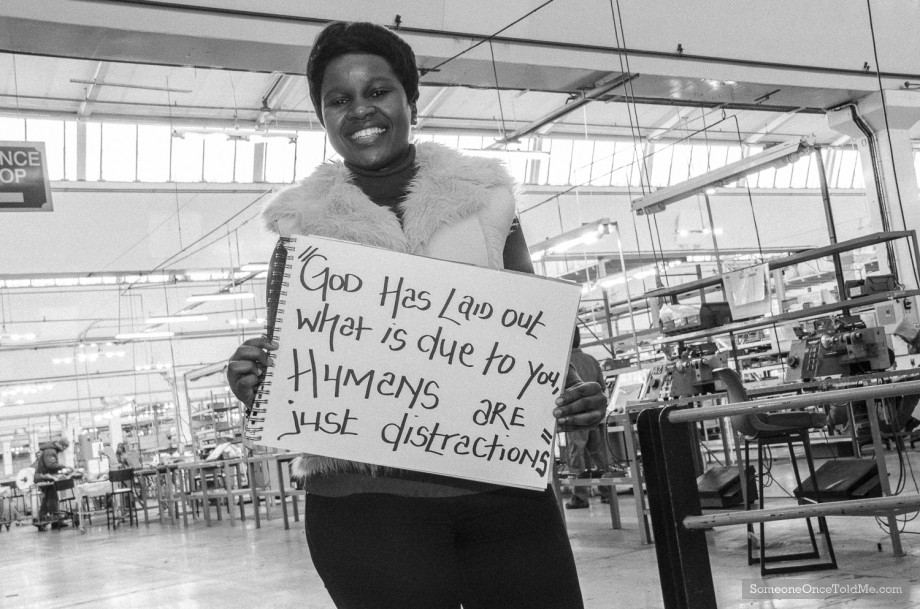 NCE
OP
"God Has Laid out
what is due to you,
Humans are
just distractions"
SomeoneOnceToldMe.com